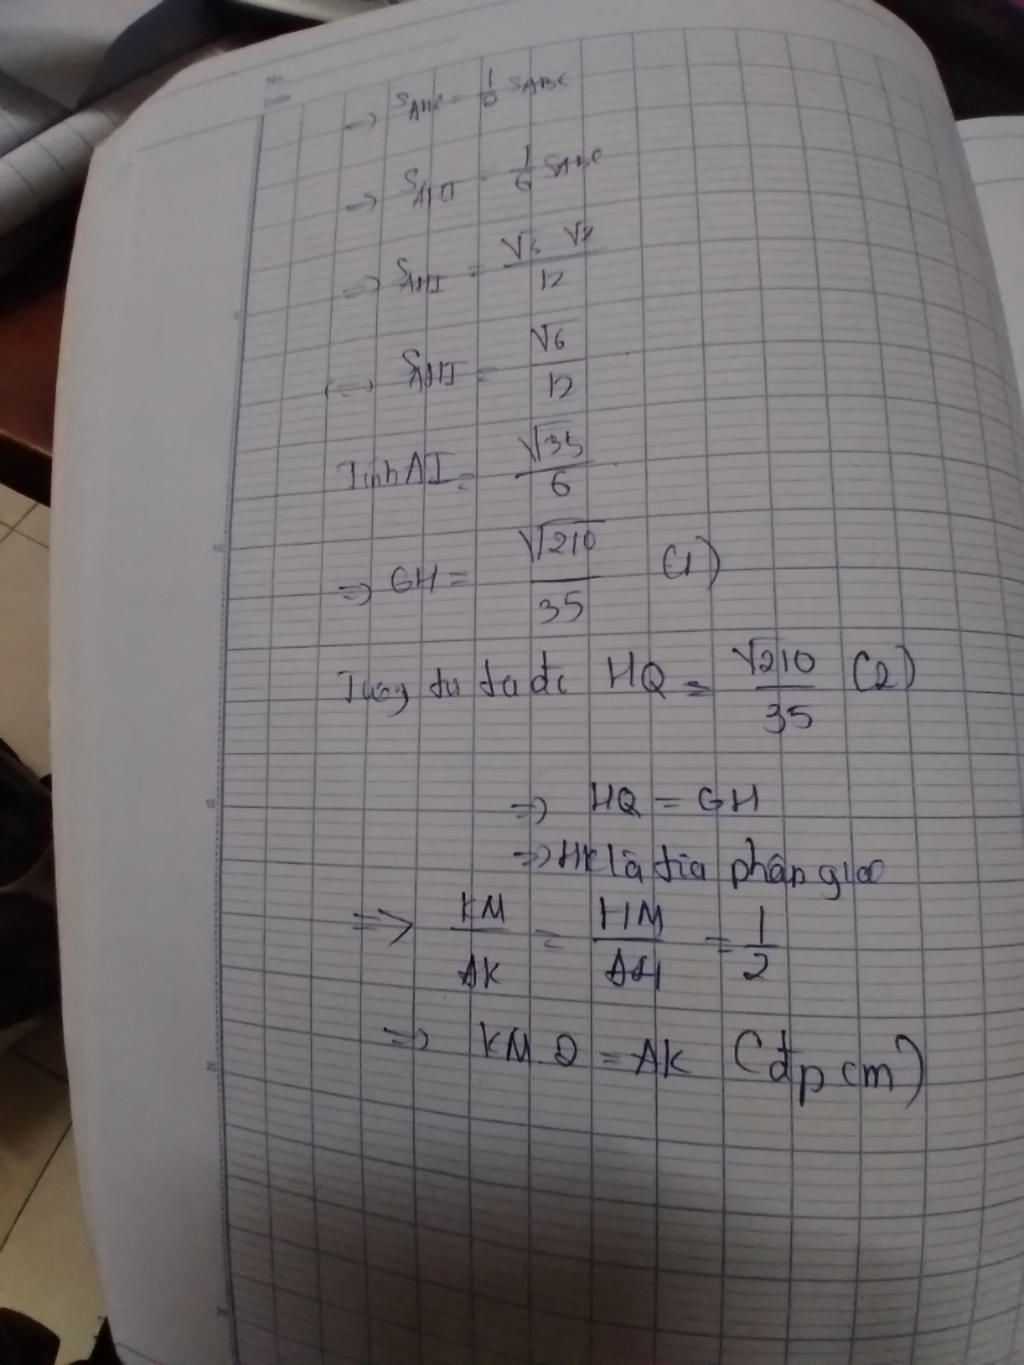 No.
Date
=> S_AHC = 1/ S_ABC
=> S = 1/6 S_ABC
=> S_AHI = √ √/12
<=> S_AHI = √6/12
Tính AI = √35/6
=> GH = √210/35 (1)
Tương tự ta đc HQ = √210/35 (2)
=> HQ = GH
=> HK là tia phân giác
=> KM/AK = HM/AH = 1/2
=> KM.2 = AK (đpcm)